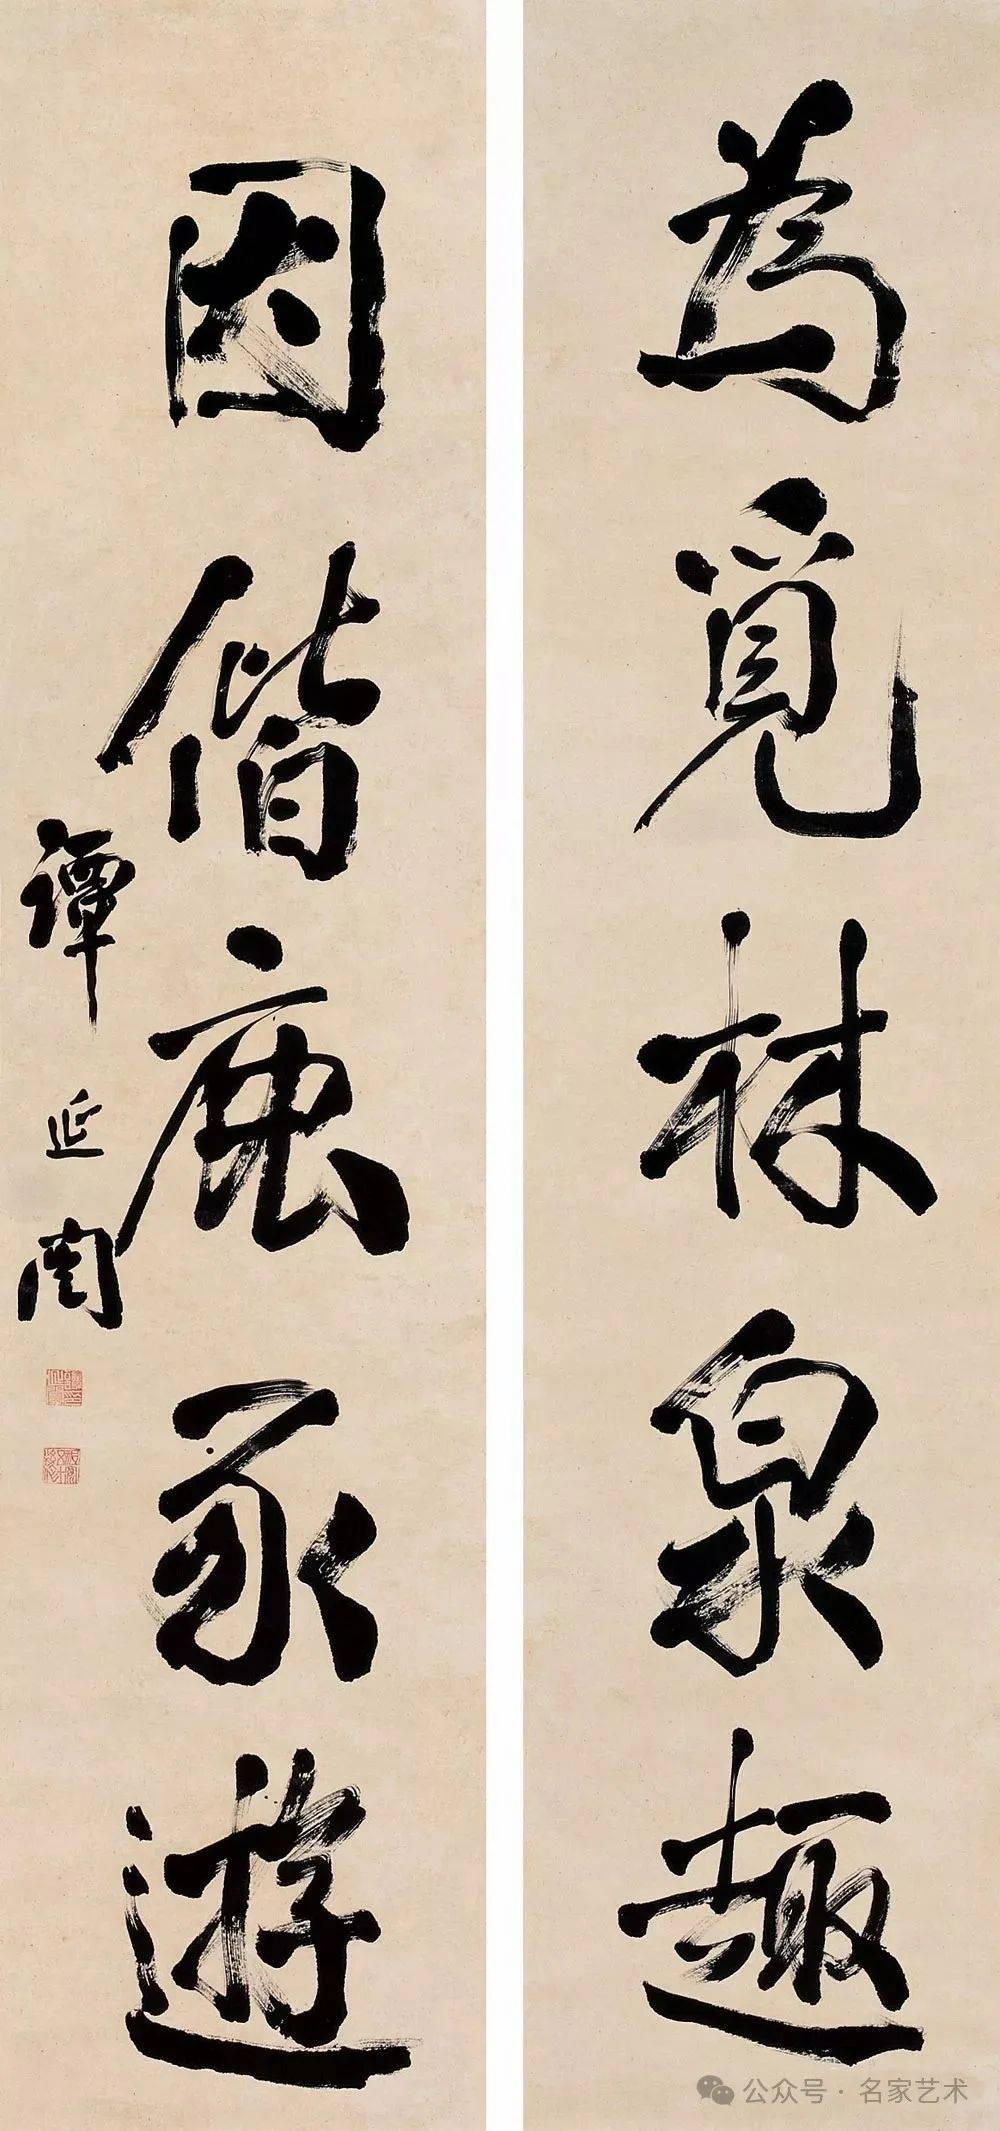 為覓林泉趣
因偕鹿豕遊
譚延闓
公众号 · 名家艺术